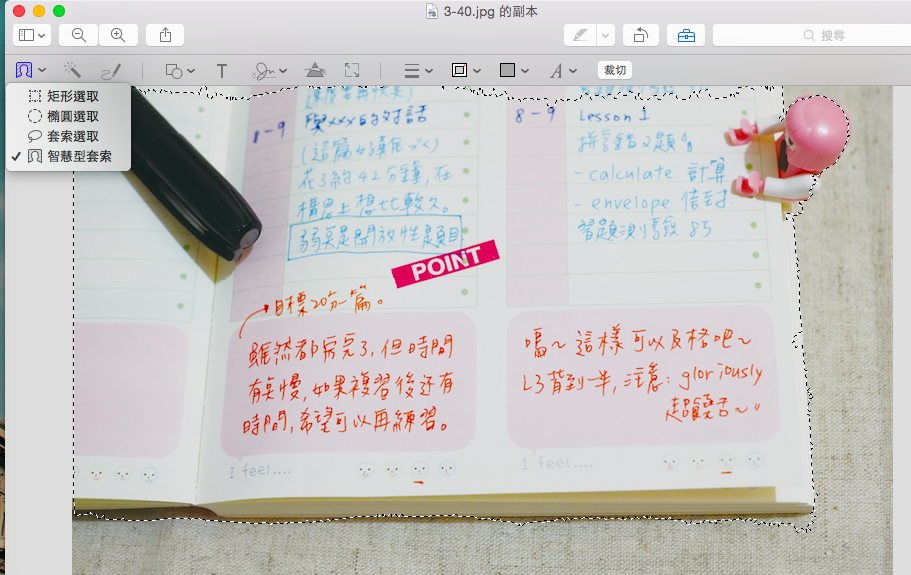 3-40.jpg 的副本
搜尋
裁切
矩形選取
橢圓選取
套索選取
智慧型套索
8-9 與xxx的對話
花了約42分鐘，在
構思上想比較久。
弱點是開放性題目
POINT
目標20分一篇。
雖然都寫完了，但時間
有夠慢，如果複習後還有
時間，希望可以再練習。
I feel....
8-9 Lesson 1
拼字錯2題
- calculate 計算
- envelope 信封
習題測驗 85
嗚~這樣可以及格吧~
L3背到一半，注意：gloriously
超饒舌~"
I feel....